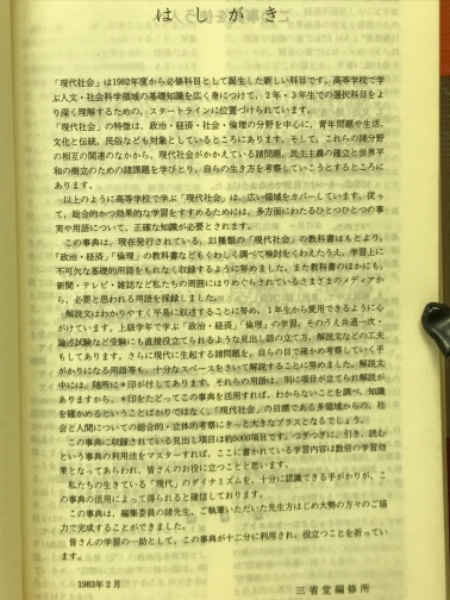 はしがき
「現代社会」は1982年度から必修科目として誕生した新しい科目です。高等学校で学
ぶ人文・社会科学領域の基礎知識を広く身につけて、2年・3年生での選択科目をよ
り深く理解するための、スタートラインに位置づけられています。
「現代社会」の特徴は、政治・経済・社会・倫理の分野を中心に、青年問題や生活、
文化と伝統、民俗なども対象としているところにあります。そして、これらの諸分野
の相互の関連のなかから、現代社会がかかえている諸問題、民主主義の確立と世界平
和の樹立のための諸課題を学びとり、自らの生き方を考察していこうとするところに
あります。
以上のように高等学校で学ぶ「現代社会」は、広い領域をカバーしています。従っ
て、総合的かつ効果的な学習をすすめるためには、多方面にわたるひとつひとつの事
実や用語について、正確な知識が必要とされます。
この事典は、現在発行されている、21種類の「現代社会」の教科書はもとより、
「政治・経済」「倫理」の教科書などもくわしく調べて検討をくわえたうえ、学習上に
不可欠な基礎的用語をもれなく収録するように努めました。また教科書のほかにも、
新聞・テレビ・雑誌など私たちの周囲にはりめぐらされているさまざまのメディアか
ら、必要と思われる用語を採録しました。
解説文はわかりやすく平易に叙述することに努め、1年生から愛用できるように心
がけています。上級学年で学ぶ「政治・経済」「倫理」の学習、そのうえ共通一次・
論述試験など受験にも直接役立てられるような見出し語の立て方、解説文などの工夫
もしてあります。さらに現代に生起する諸問題を、自らの目で確かめ考察していく手
がかりになる用語等も、十分なスペースをさいて解説することに努めました。解説文
中には、随所に＊印が付してあります。それらの用語は、別に項目が立てられ解説が
ありますから、＊印をたどってこの事典を活用すれば、わからないことを調べ、知識
を確かめるということばかりではなく、「現代社会」の目標である多領域からの、社
会と人間についての総合的・立体的考察にきっと大きなプラスとなるでしょう。
この事典に収録されている見出し項目は約5000項目です。つぎつぎに、引き、読む
という事典の利用法をマスターすれば、ここに書かれている学習内容は数倍の学習効
果となってあらわれ、皆さんのお役に立つことと思います。
私たちの生きている「現代」のダイナミズムを、十分に認識できる手がかりが、こ
の事典の活用によって得られると確信しております。
この事典は、編集委員の諸先生、ご執筆いただいた先生方はじめ大勢の方々のご協
力で完成することができました。
皆さんの学習の一助として、この事典が十二分に利用され、役立つことを祈ってい
ます。
1983年2月
三省堂編修所